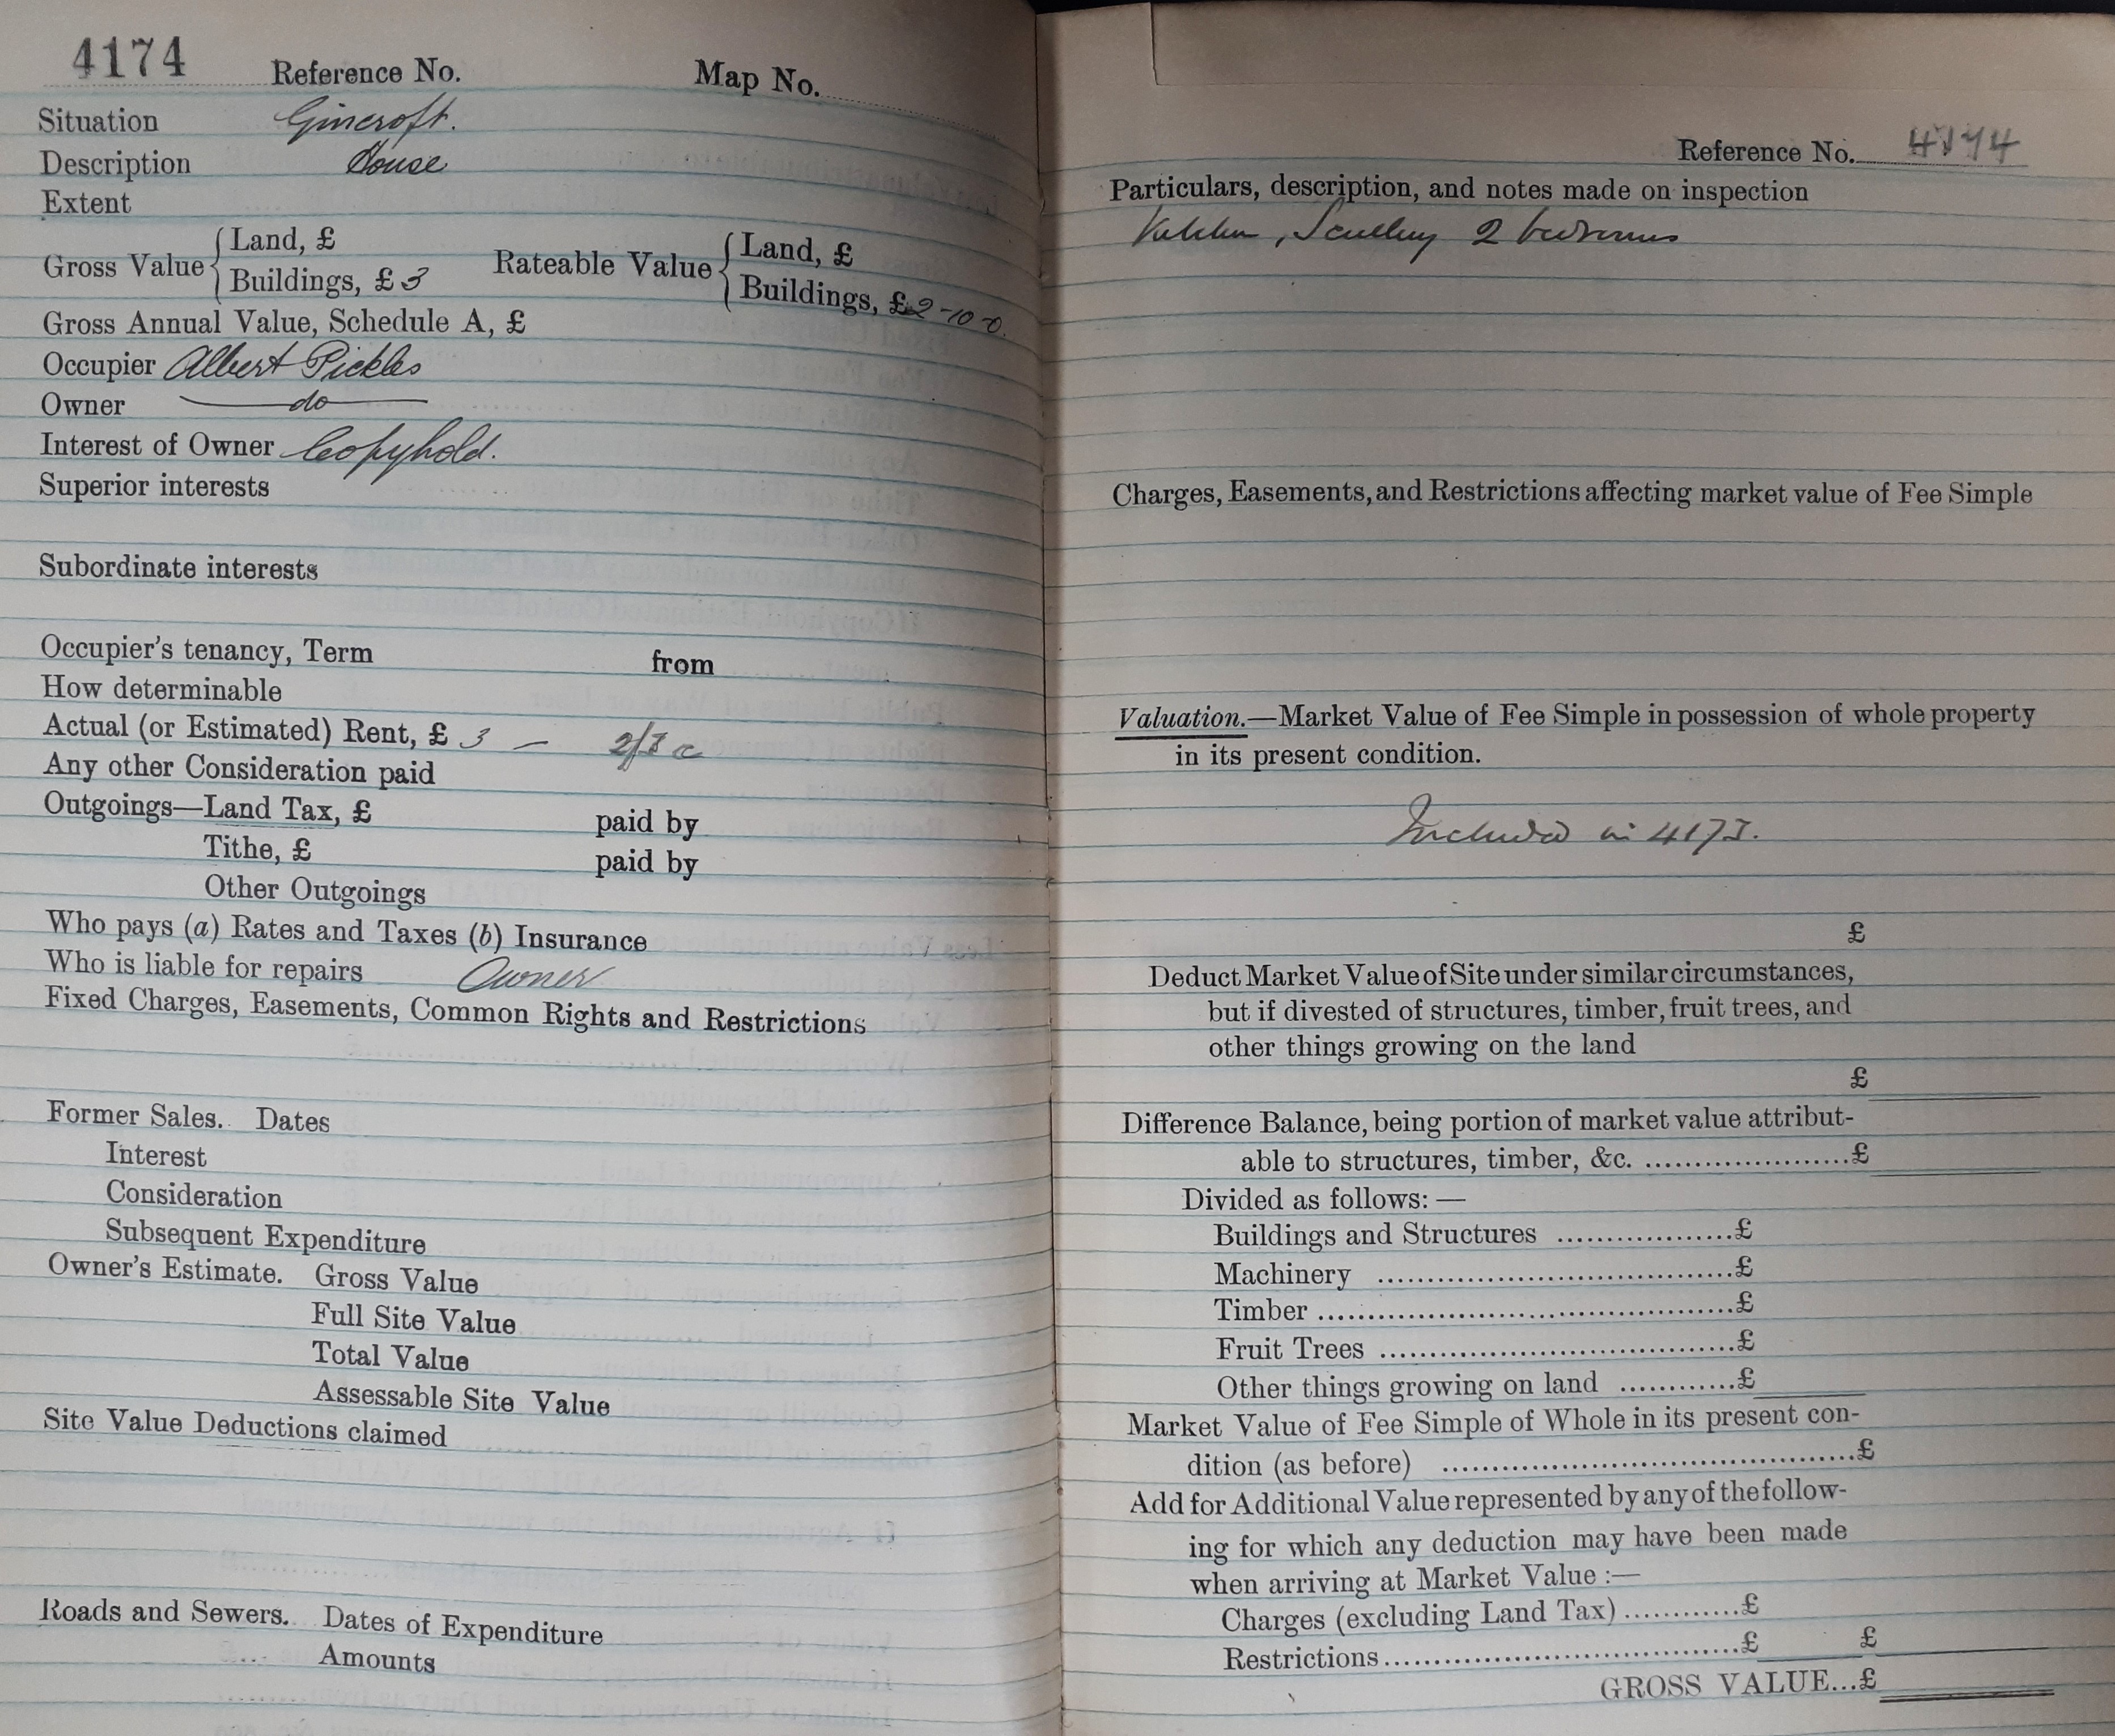 4174 Reference No. Map No.
Situation Gincroft.
Description House
Extent
Gross Value { Land, £
Buildings, £ 3
Rateable Value { Land, £
Buildings, £ 2-10-0.
Gross Annual Value, Schedule A, £
Occupier Albert Pickles
Owner do
Interest of Owner Copyhold.
Superior interests
Subordinate interests
Occupier's tenancy, Term from
How determinable
Actual (or Estimated) Rent, £ 3 —
Any other Consideration paid
Outgoings—Land Tax, £ paid by
Tithe, £ paid by
Other Outgoings
Who pays (a) Rates and Taxes (b) Insurance
Who is liable for repairs Owner
Fixed Charges, Easements, Common Rights and Restrictions
Former Sales. Dates
Interest
Consideration
Subsequent Expenditure
Owner's Estimate. Gross Value
Full Site Value
Total Value
Assessable Site Value
Site Value Deductions claimed
Roads and Sewers. Dates of Expenditure
Amounts
Reference No. 4174
Particulars, description, and notes made on inspection
Kitchen, Scullery 2 bedrooms
Charges, Easements, and Restrictions affecting market value of Fee Simple
Valuation.—Market Value of Fee Simple in possession of whole property
in its present condition.
Included in 4173.
£
Deduct Market Value of Site under similar circumstances,
but if divested of structures, timber, fruit trees, and
other things growing on the land
£
Difference Balance, being portion of market value attribut-
able to structures, timber, &c. ....................£
Divided as follows:—
Buildings and Structures ..................£
Machinery ....................................£
Timber ..........................................£
Fruit Trees ....................................£
Other things growing on land ............£
Market Value of Fee Simple of Whole in its present con-
dition (as before) ..........................................£
Add for Additional Value represented by any of the follow-
ing for which any deduction may have been made
when arriving at Market Value :—
Charges (excluding Land Tax) ............£
Restrictions ....................................£ £
GROSS VALUE...£